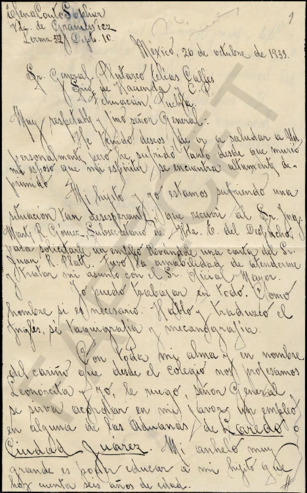 Elena Couto Saldívar
Vda. de
Lerma 32 / Depto. 10
1
México, 20 de octubre de 1933.
Sr. General Plutarco Elías Calles
Srio. de Hacienda y C.P.
Tehuacán, Puebla.
Muy respetado y fino señor General:
He tenido deseos de ir a saludar a Ud
personalmente pero he sufrido tanto desde que murió
mi esposo que mi espíritu se encuentra altamente de-
primido
Mi hijito y yo estamos sufriendo una
situación tan desesperante, que recurrí al Sr. Ing.
Marte R. Gómez, Subsecretario de Hda. E. del Despacho,
para solicitarle un empleo llevándole una carta del Sr.
Juan R. Platt. Tuvo la amabilidad de atenderme
y tratar mi asunto con el Sr. Oficial Mayor
Yo puedo trabajar en todo. Como
hombre si es necesario. Hablo y traduzco el
Inglés, se Taquigrafía y mecanografía.
Con toda mi alma y en nombre
del cariño que desde el colegio nos profesamos
Leonorcita y yo, le ruego, señor General
se sirva acordar en mi favor, un empleo
en alguna de las Aduanas, de Laredo ó
Ciudad Juárez. Mi anhelo muy
grande es poder educar a mi hijito que
hoy cuenta seis años de edad.